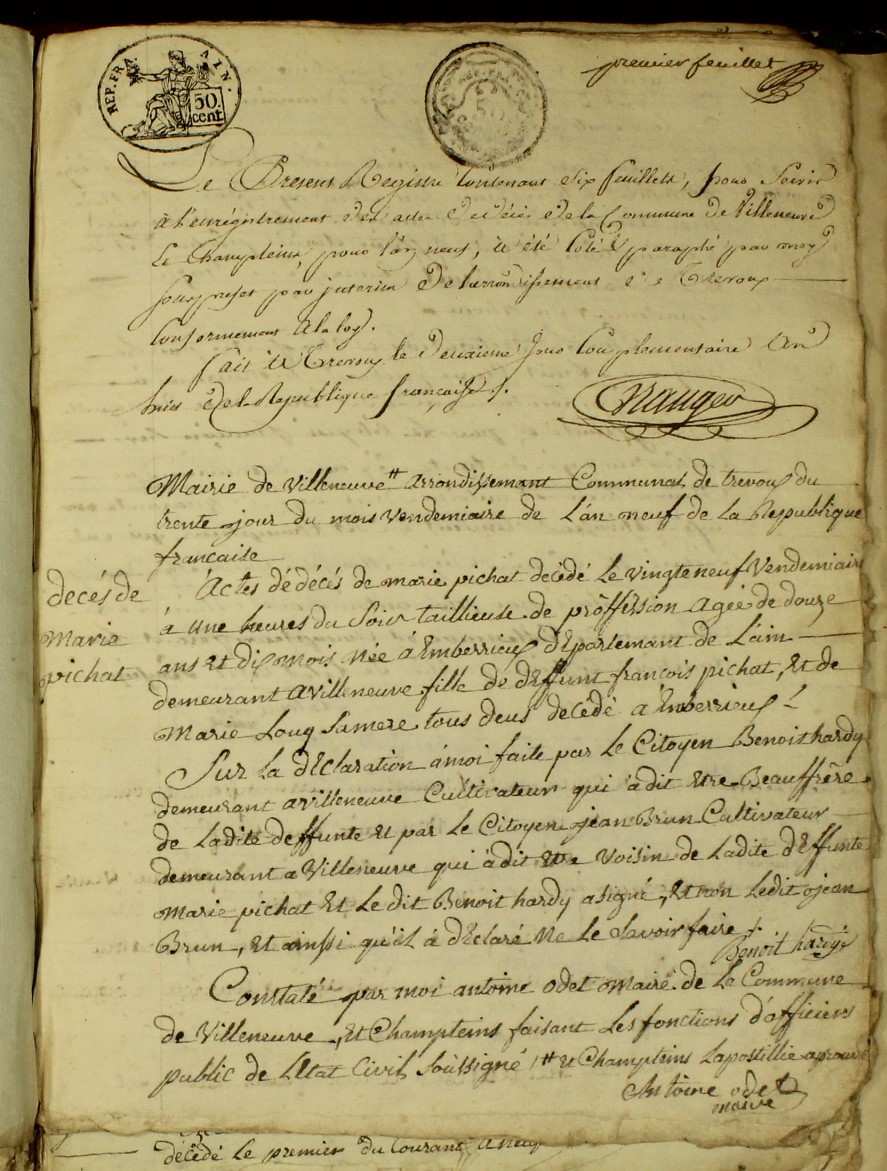 REP. FRA. AIN.
50. cent
REP. FRA.
premier feuillet
Le Present Registre Contenant Six feuillets, pour Servir
à l'enregistrement des actes Decès de la Commune de Villeneuve
Le Champteins, pour l'an neuf, a été Coté & paraphé par moy
Souspréfet par interim de l'arrondissement de Trevoux
Conformement à la loy.
fait à Trevoux le Deuxieme Jour Complementaire an
huit de la Republique française.
Mairie de Villeneuve # arrondissemant Communal de trevoux du
trente jour du mois vendemiaire de L'an neuf de La Republique
francaise
decés de
Marie
pichat
Actes dédécis de marie pichat decédé Le vingteneuf Vendemiaire
à une heures du Soir taillieuse de proffession agée de douze
ans et dix mois Née à Emberrieux dEpartemant de L'ain
demeurant aVilleneuve fille de dEffunt françois pichat, Et de
Marie Loug Samere tous deux decédé a Emberrieux
Sur La dEclaration àmoi faite par Le Citoyen Benoit hardy
demeurant aVilleneuve Cultivateur qui àdit Etre Beauffrère
de Ladite deffunte Et par Le Citoyen jean Brun Cultivateur
demeurant a Villeneuve qui àdit Etre Voisin de Ladite dEffunte
Marie pichat Et Le dit Benoit hardy asigné, Et non Ledit jean
Brun, Et ainssi qu'il à dEclaré Ne Le Savoir faire
Benoit hardy
Constaté par moi antoine odet Maire de La Commune
de Villeneuve, Et Champteins faisant Les fonctions d'officiers
public de LEtat Civil Soussigné # et Champteins Lapostillie aprouvé
Antoine odet
maire
décédé Le premier du Courant a neuf